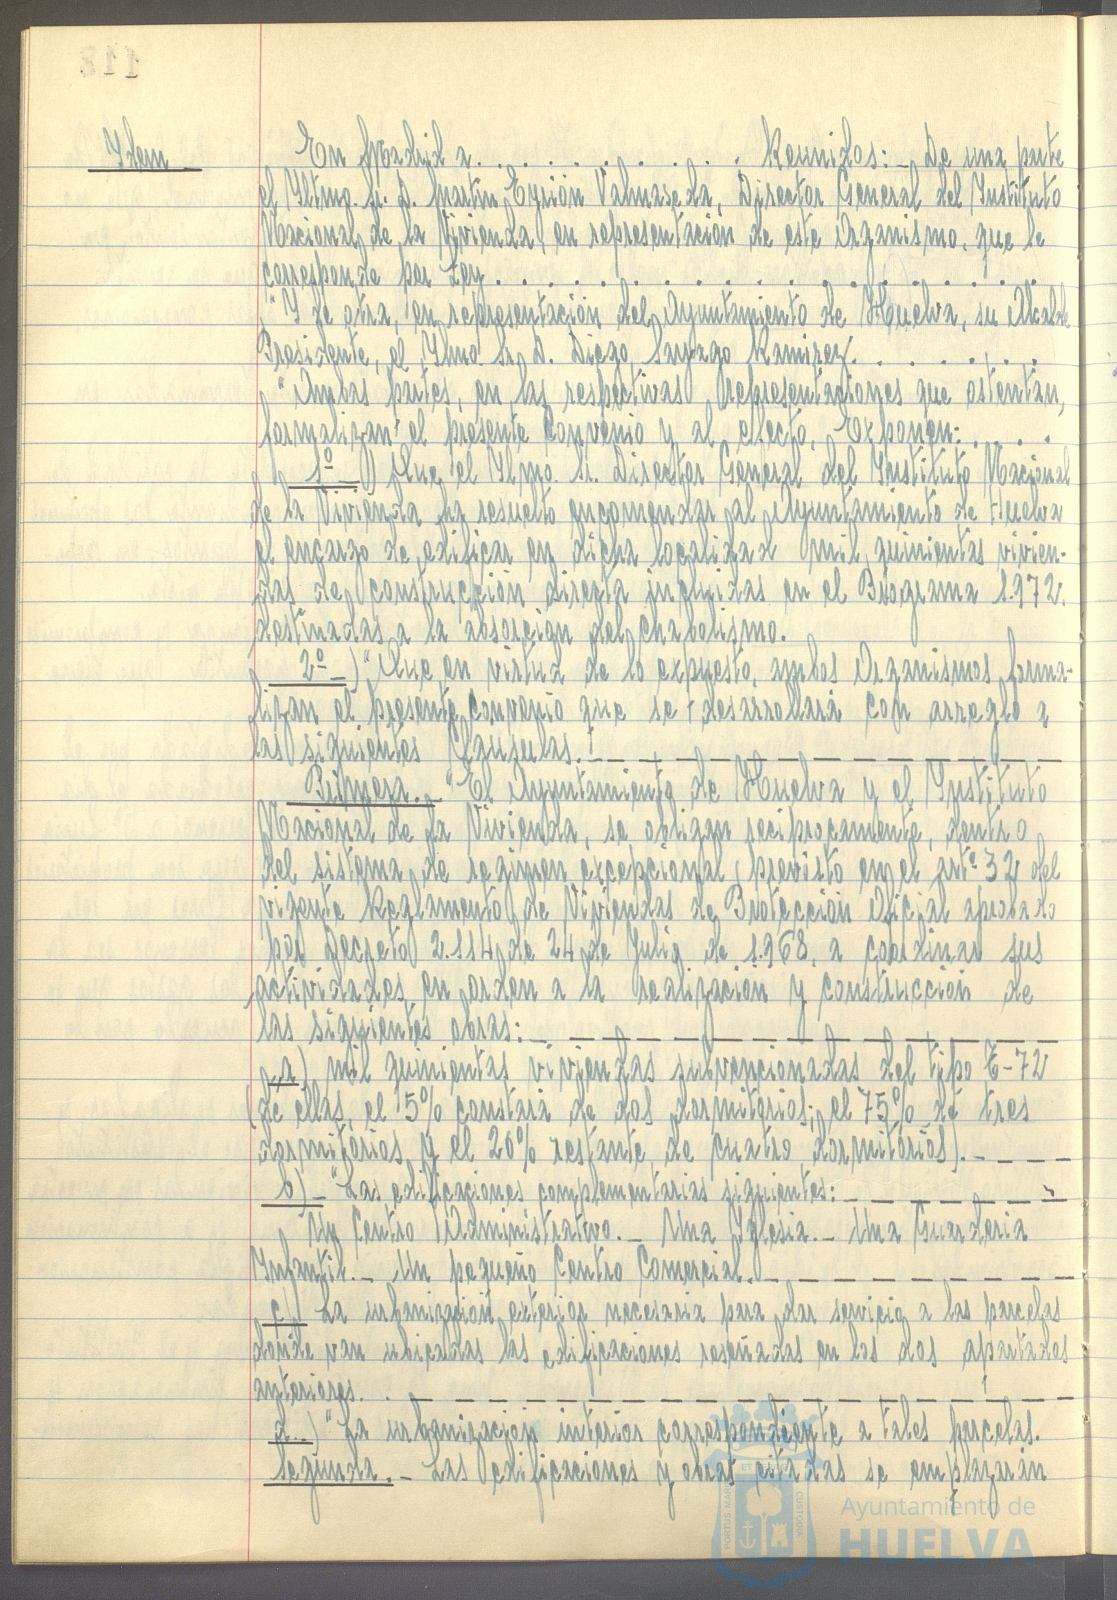 118
Idem
En Madrid a. . . . . . . . . . Reunidos: - De una parte
el Iltmo. Sr. D. Martin Eyriés Valmaseda, Director General del Instituto
Nacional de la Vivienda, en representación de este Organismo, que le
corresponde por Ley. . . . . . . . . . . . . . . . . .
"Y de otra, en representación del Ayuntamiento de Huelva, su Alcalde
Presidente, el Ilmo. Sr. D. Diego Sayago Ramirez. . . . . . .
"Ambas partes, en las respectivas representaciones que ostentan,
formalizan el presente Convenio y al efecto, Exponen: . . . .
1º ) Que el Ilmo. Sr. Director General del Instituto Nacional
de la Vivienda ha resuelto encomendar al Ayuntamiento de Huelva
el encargo de edificar en dicha localidad mil quinientas vivien-
das de construcción directa incluidas en el Programa 1.972,
destinadas a la absorción del chabolismo.
2º -)"Que en virtud de lo expuesto, ambos Organismos forma-
lizan el presente convenio que se desarrollará con arreglo a
las siguientes Clausulas.
Primera. - "El Ayuntamiento de Huelva y el Instituto
Nacional de la Vivienda, se obligan reciprocamente, dentro
del sistema de regimen excepcional, previsto en el artº 32 del
vigente Reglamento de Viviendas de Protección Oficial aprobado
por Decreto 2.114 de 24 de Julio de 1.968, a coordinar sus
actividades en orden a la realización y construcción de
las siguientes obras: -
a) mil quinientas viviendas subvencionadas del tipo E-72
(de ellas, el 5% constará de dos dormitorios; el 75% de tres
dormitorios y el 20% restante de cuatro dormitorios). -
b) - "Las edificaciones complementarias siguientes: -
Un Centro Administrativo. - Una Iglesia. - Una Guarderia
Infantil. - Un pequeño Centro Comercial. -
c) La urbanización exterior necesaria para dar servicio a las parcelas
donde van ubicadas las edificaciones reseñadas en los dos apartados
anteriores. . -
d..) "La urbanización interior correspondiente a tales parcelas.
Segunda. - Las edificaciones y obras citadas se emplazaran
PORTUS MARIS ET TERRAE CUSTODIA
Ayuntamiento de
HUELVA